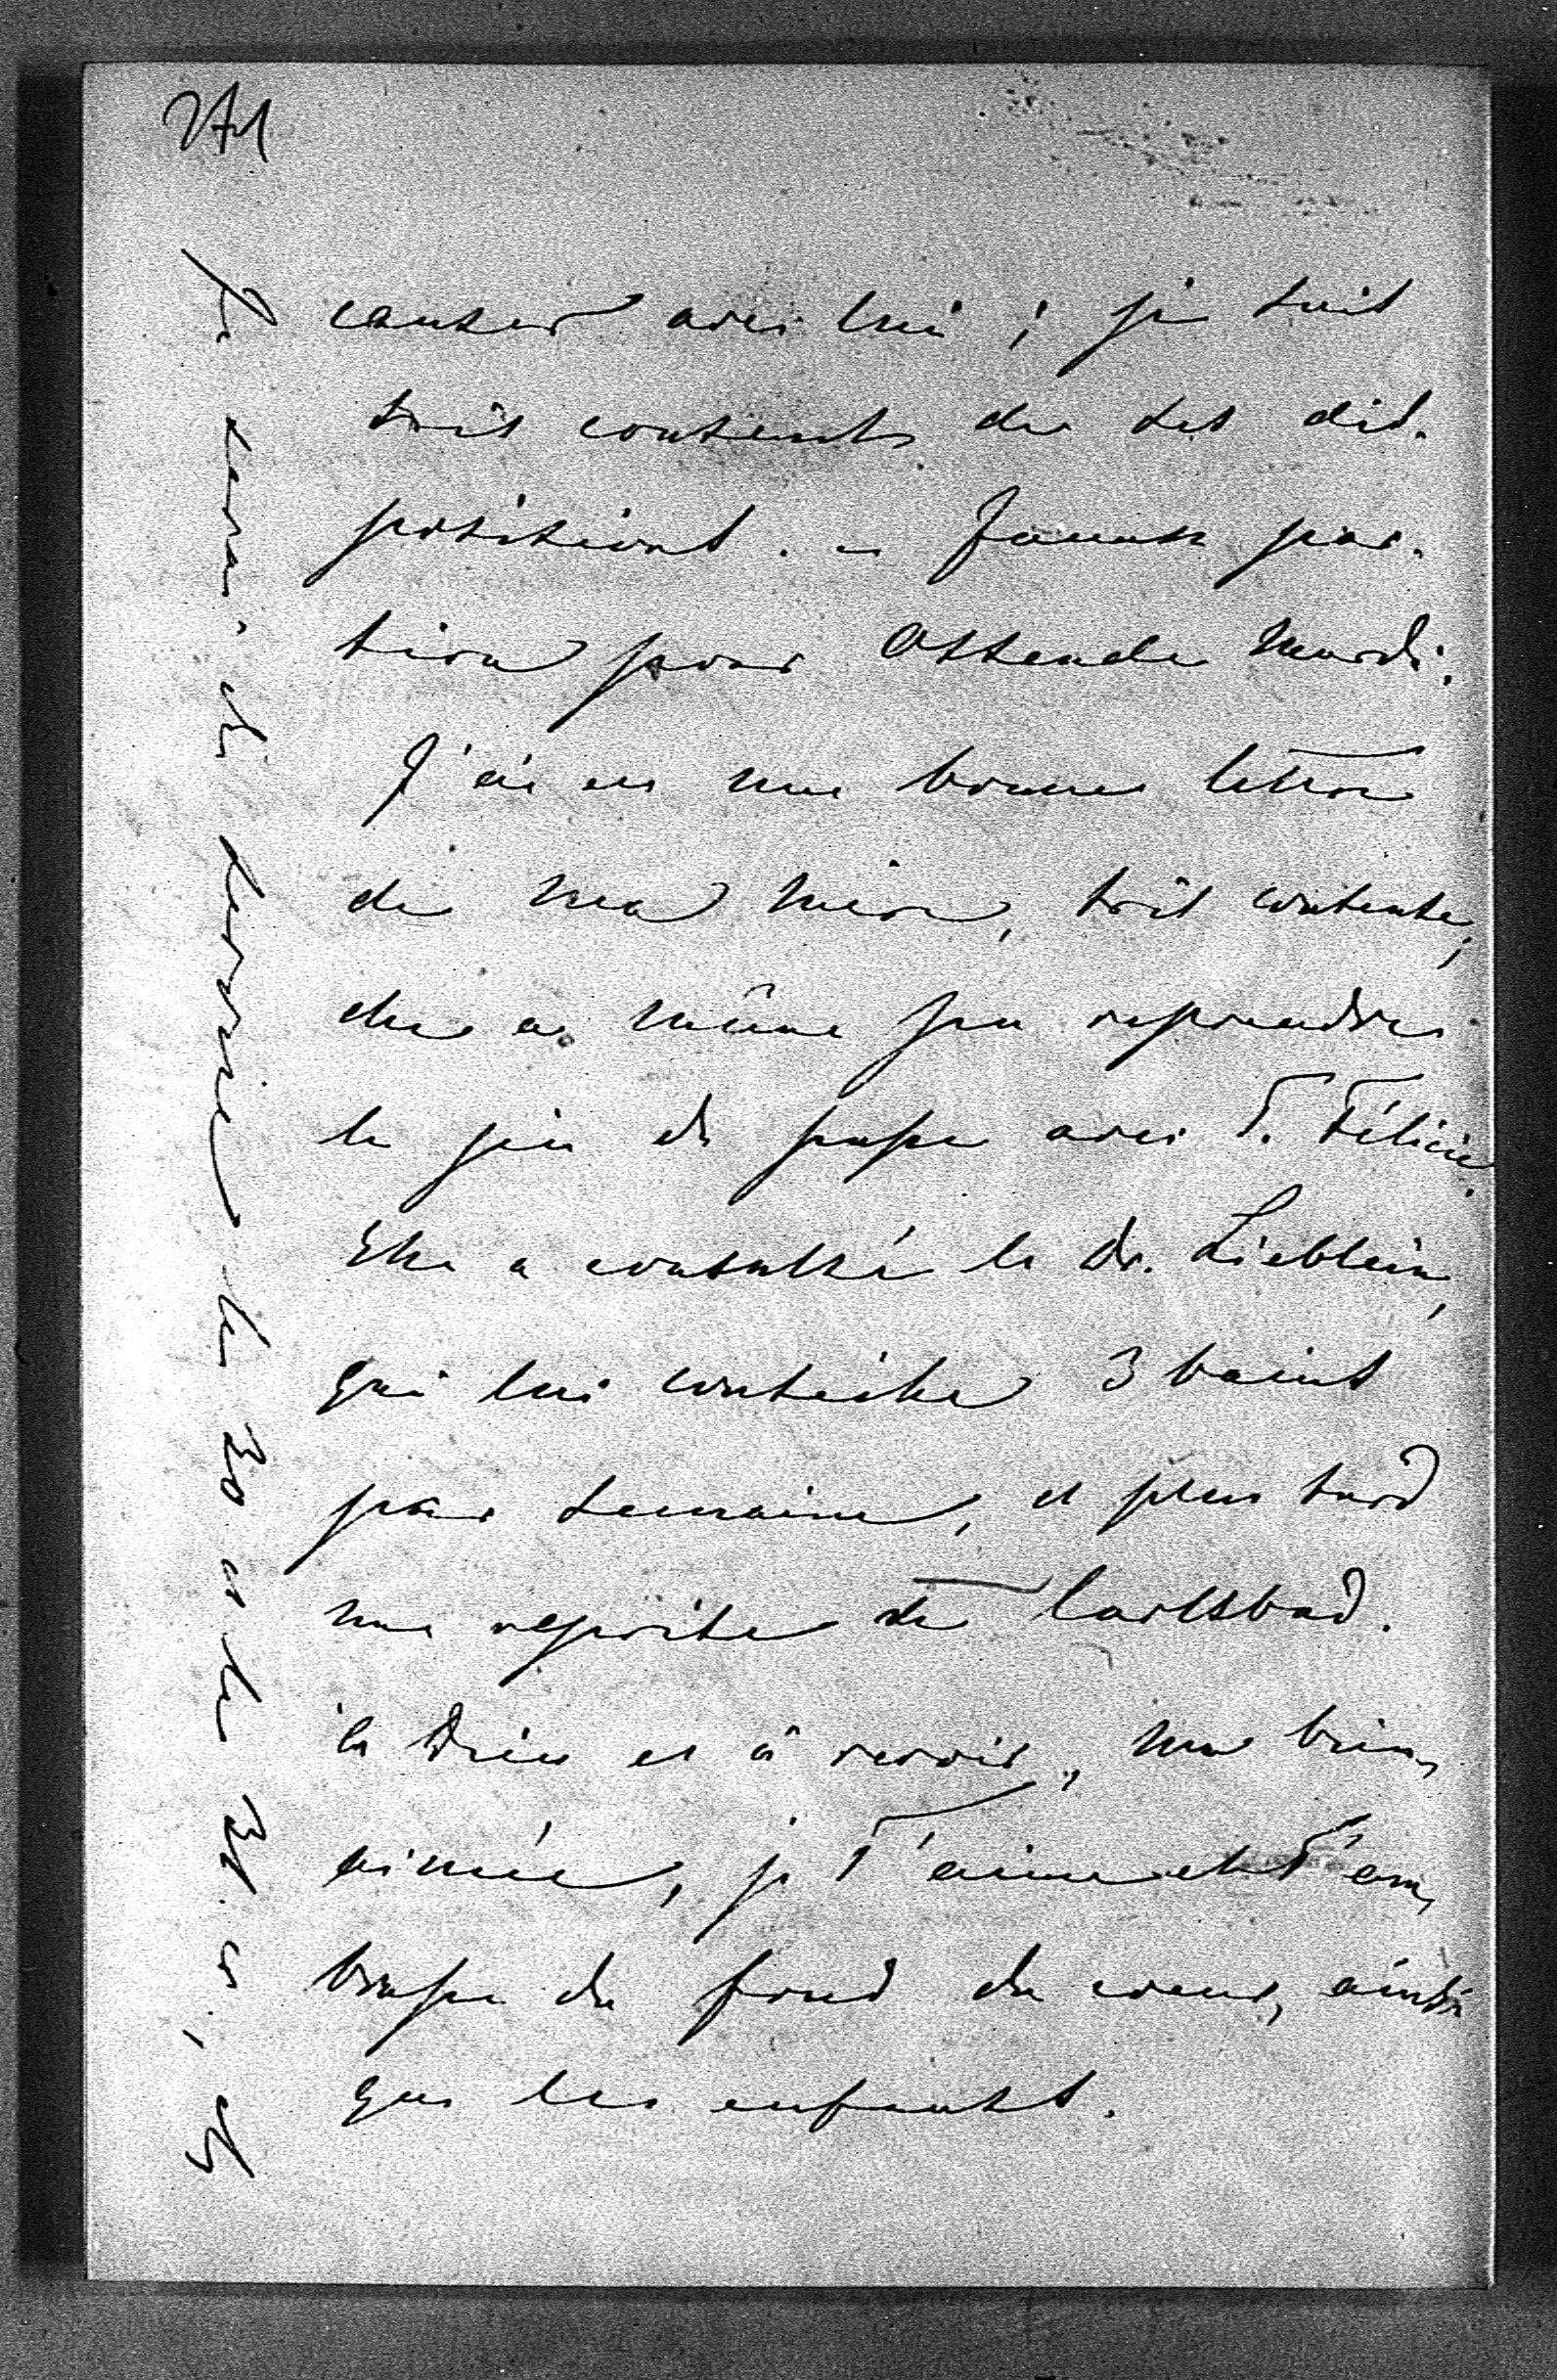 271
causer avec lui ; je suis
très content de ses dis-
positions. – Fanny par-
tira pour Ostende Mardi.
J'ai eu une bonne lettre
de ma mère, très contente,
elle a même pu reprendre
le jeu de paper avec T. Félicie.
Elle a consulté le Dr. Lieblein,
qui lui conseille 3 bains
par semaine, et plus tard
une reprise de Carlsbad.
à Dieu et à revoir, ma bien-
aimée, je T'aime et T'em-
brasse du fond du coeur, ainsi
que les enfants.
Je serai de service le 30 et le 31.